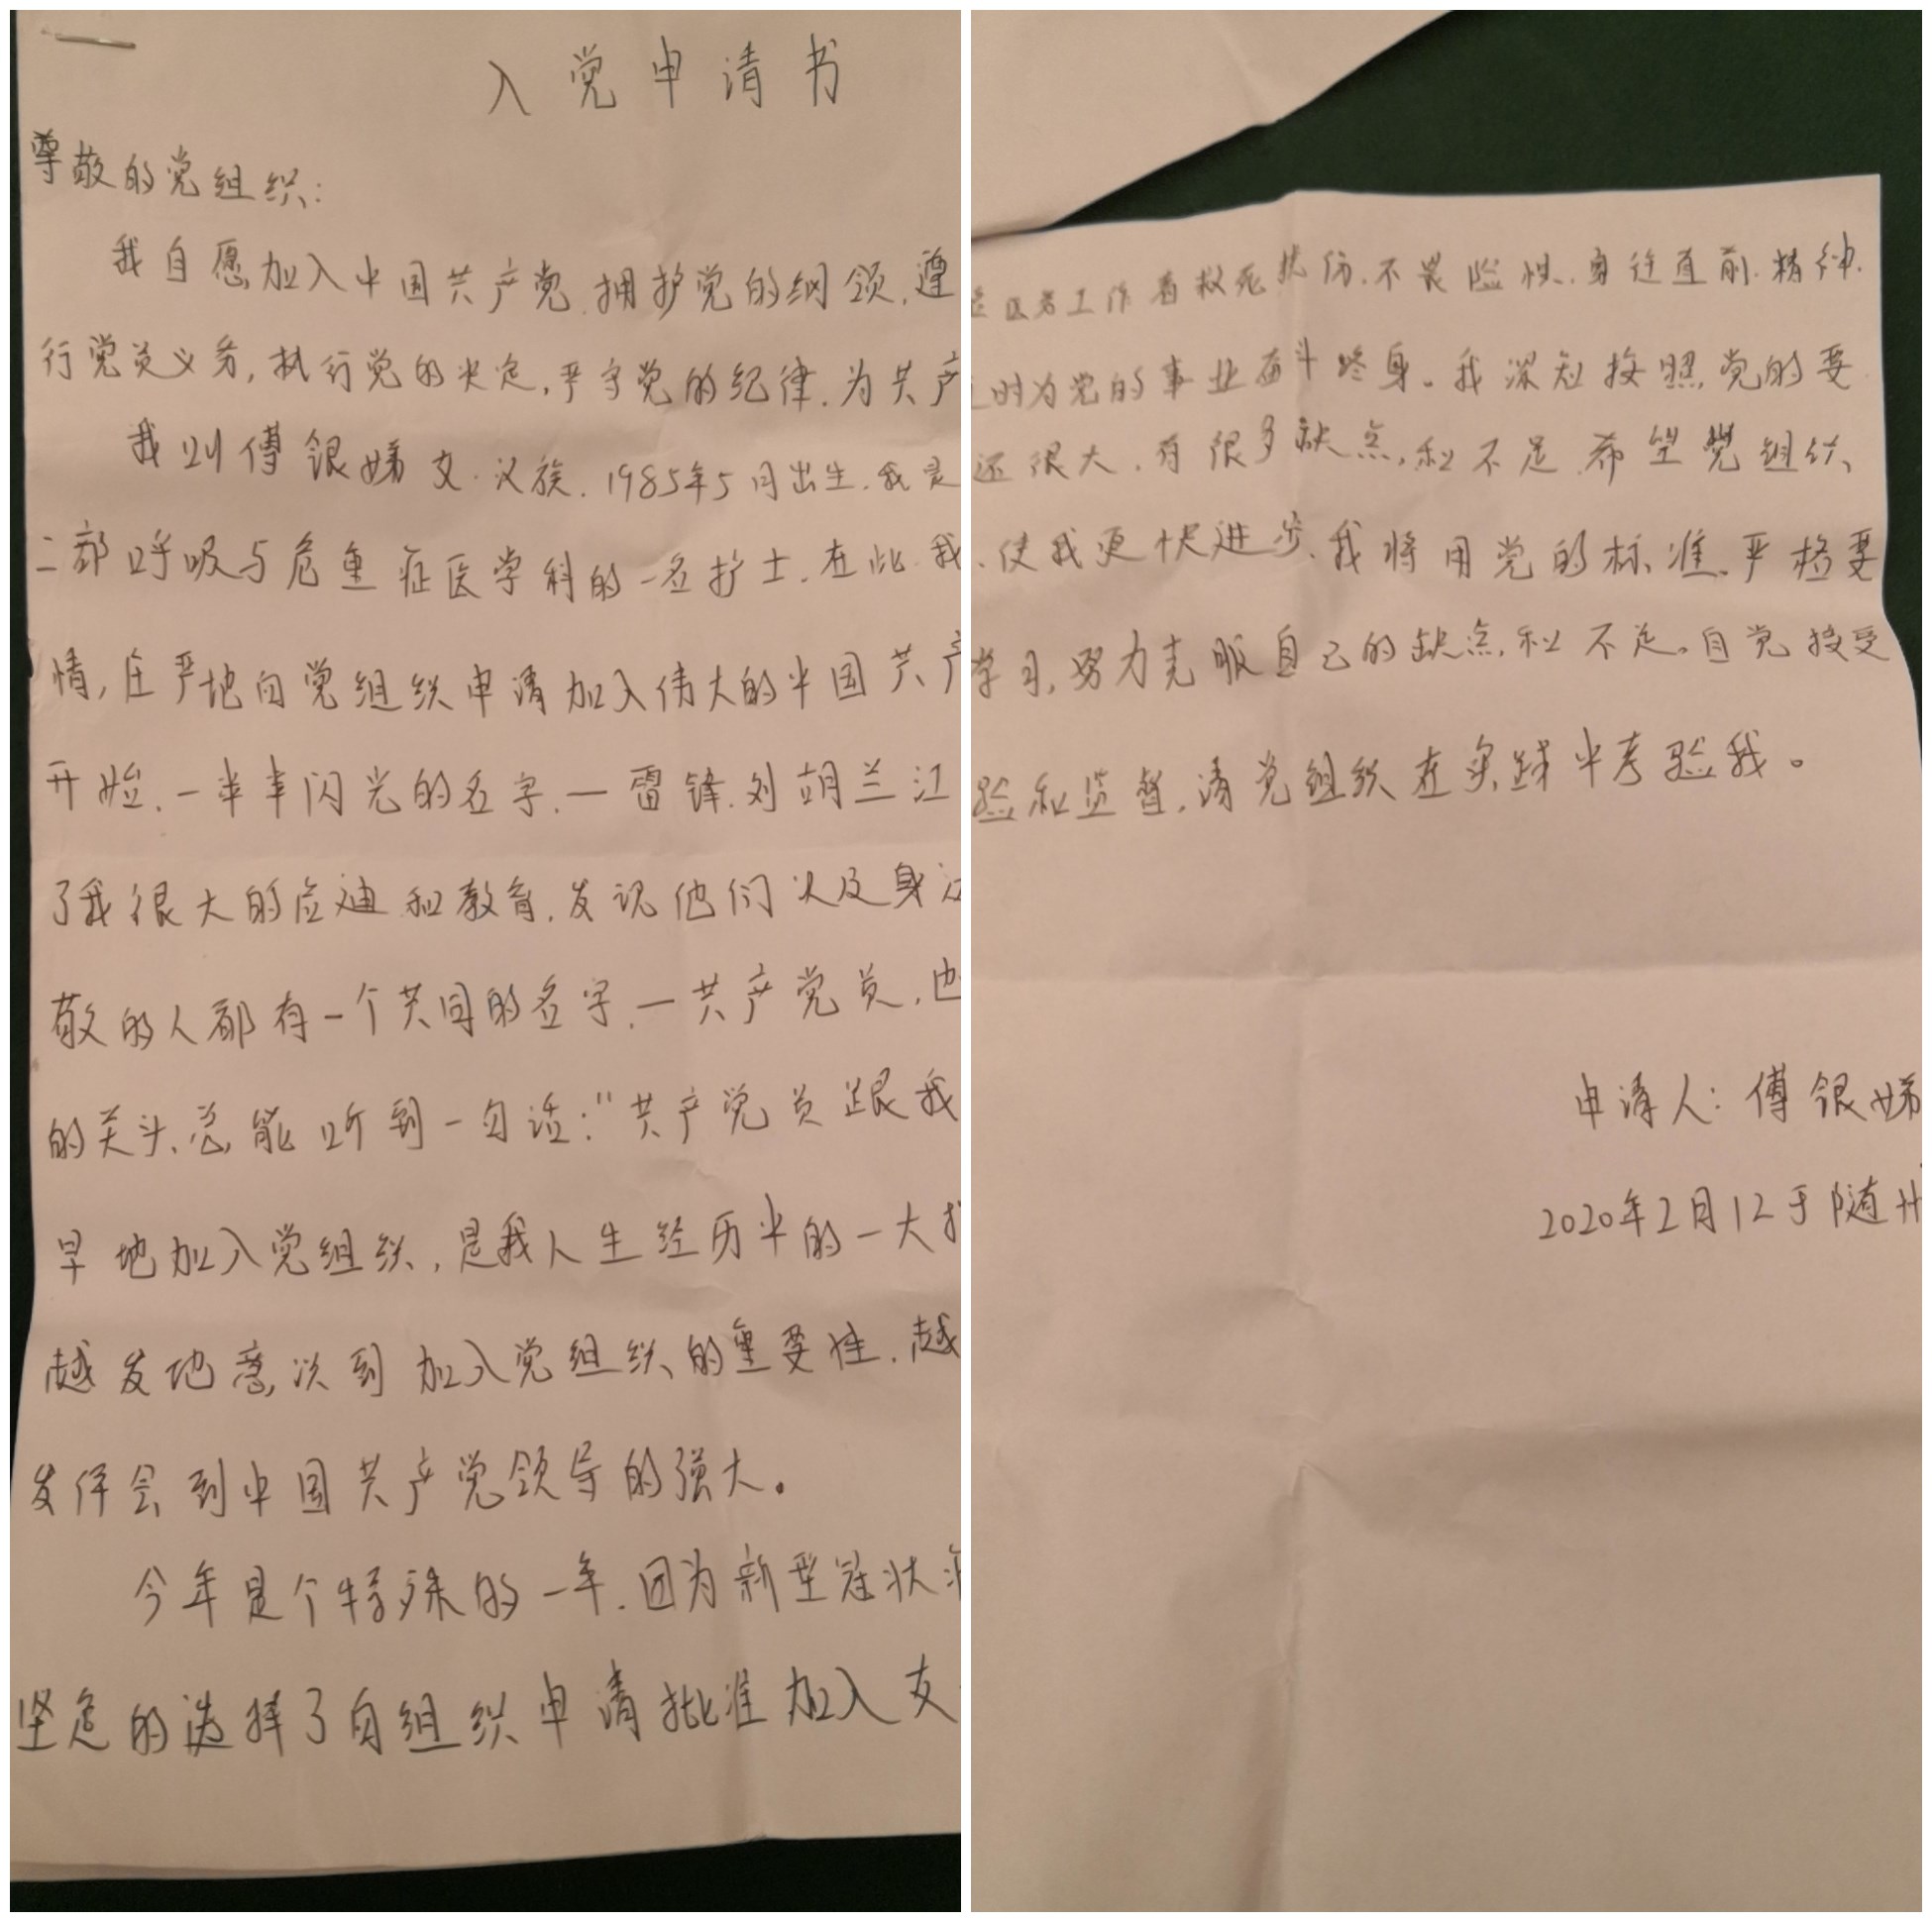 入党申请书
尊敬的党组织:
我自愿加入中国共产党.拥护党的纲领,遵
行党员义务,执行党的决定,严守党的纪律.为共产
我叫傅银娣 女.汉族.1985年5月出生.我是
二部呼吸与危重症医学科的一名护士.在此.我
情,庄严地向党组织申请加入伟大的中国共产
开始.一串串闪光的名字.一雷锋.刘胡兰江
了我很大的启迪和教育.发现他们以及身边
敬的人都有一个共同的名字.一共产党员.也
的关头.总能听到一句话:"共产党员跟我
早地加入党组织,是我人生经历中的一大
越发地意识到加入党组织的重要性.越
发体会到中国共产党领导的强大。
今年是个特殊的一年.因为新型冠状病
坚定的选择了向组织申请批准加入支
医务工作者救死扶伤.不畏险性.勇往直前.精神.
时为党的事业奋斗终身。我深知按照党的要
还很大.有很多缺点,和不足.希望党组织
.使我更快进步.我将用党的标准.严格要
学习,努力克服自己的缺点,和不足。自觉接受
验和监督,请党组织在实践中考验我。
申请人:傅银娣
2020年2月12于随州